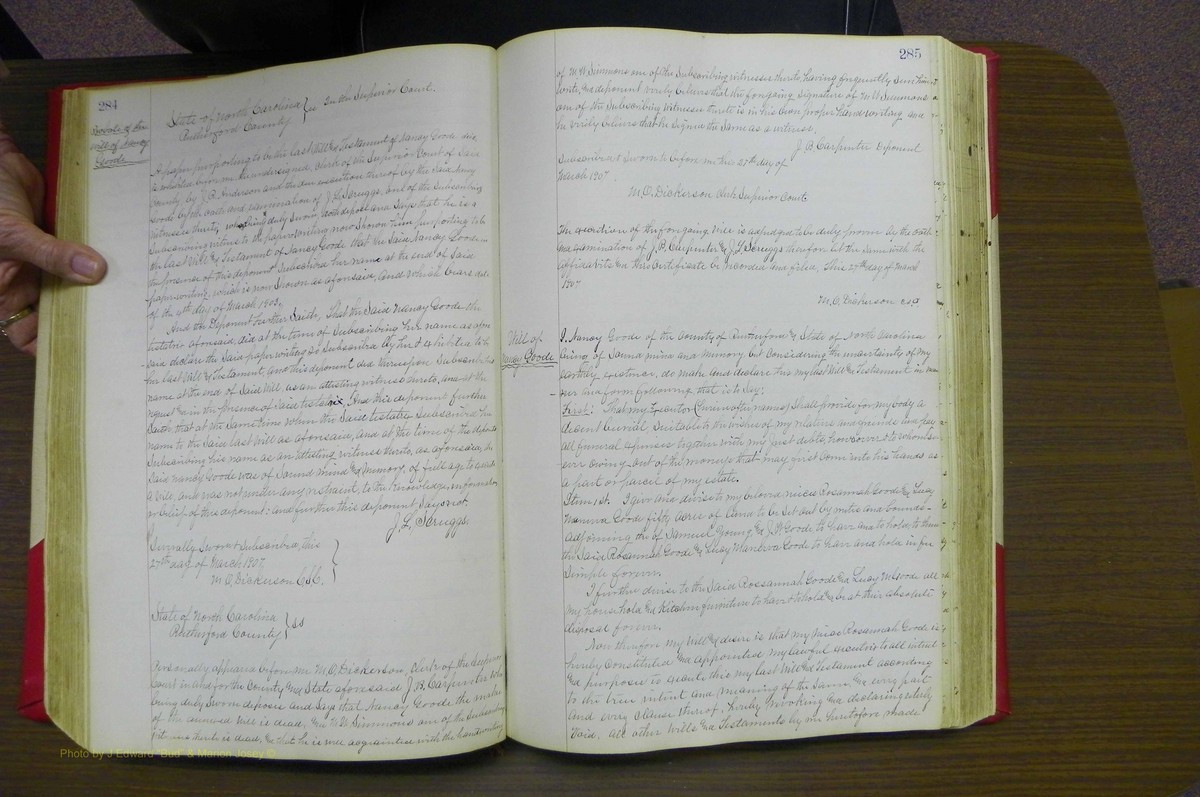 284
Probate of the
will of Nancy
Goode
State of North Carolina } ss In the Superior Court.
Rutherford County
A paper purporting to be the last Will & Testament of Nancy Goode dec'd
is exhibited before me the undersigned, clerk of the Superior Court of said
County by J. P. Anderson and the due execution thereof by the said Nancy
Goode by the oath and examination of J. L. Scruggs, one of the subscribing
witnesses thereto, who being duly sworn, doth depose and says that he is a
subscribing witness to the paper writing now shown him purporting to be
the last Will & Testament of Nancy Goode that the said Nancy Goode in
the presence of this deponent subscribed her name at the end of said
paper writing which is now shown as aforesaid, and which bears date
of the 4th day of March 1903.
And the Deponent further saith, That the said Nancy Goode the
testatrix aforesaid, did at the time of subscribing her name as afore
said declare the said paper writing so subscribed by her & exhibited to be
her last Will & Testament, and this deponent did thereupon subscribe his
name at the end of said Will, as an attesting witness thereto, and at the
request & in the presence of said testatrix, And this deponent further
saith that at the same time when the said testatrix subscribed her
name to the said last will as aforesaid, and at the time of the deponent
subscribing his name as an attesting witness thereto, as aforesaid, the
said Nancy Goode was of sound mind & memory, of full age to execute
a will, and was not under any restraint, to the knowledge, information
or belief of this deponent: and further this deponent says not.
J. L. Scruggs.
Severally sworn & subscribed, this
27th day of March 1907 }
M. O. Dickerson C.S.C.
State of North Carolina } ss
Rutherford County
Personally appeared before me M. O. Dickerson, clerk of the Superior
Court in and for the County and State aforesaid J. B. Carpenter who
being duly sworn deposes and says that Nancy Goode the maker
of the annexed Will is dead, & M W Simmons one of the subscribing
witness thereto is dead, & that he is well acquainted with the handwriting
285
of M. W. Simmons one of the subscribing witnesses thereto, having frequently seen him
write, and deponent verily believes that the foregoing signature of M W Simmons
one of the subscribing witnesses thereto is in his own proper handwriting and
he verily believes that he signed the same as a witness.
J. B. Carpenter Deponent
Subscribed & sworn to before me the 25th day of
March 1907.
M. O. Dickerson Clerk Superior Court.
The execution of the foregoing Will is adjudged to be duly proven by the oath
and examination of J. B. Carpenter & J. L. Scruggs therefore let the same with the
affidavits and this Certificate be recorded and filed, This 27th day of March
1907
M. O. Dickerson C.S.C
Will of
Nancy Goode
I, Nancy Goode of the County of Rutherford & State of North Carolina
being of sound mind and memory but considering the uncertainty of my
earthly existence, do make and declare this my last Will & Testament in man
ner and form following that is to say:
First: That my Executor (hereinafter named) shall provide for my body a
decent burial, suitable to the wishes of my relatives and friends and pay
all funeral expenses together with my just debts, however & to whomso-
ever owing out of the moneys that may first come into his hands as
a part or parcel of my estate.
Item 1st. I give and devise to my beloved nieces Rosannah Goode & Lucy
Manerva Goode fifty acres of land to be set out by metes and bounds
adjoining the of Samuel Young & J. P. Goode to have and to hold to them
the said Rosannah Goode & Lucy Manerva Goode to have and hold in fee
simple forever.
I further devise to the said Rosannah Goode and Lucy M. Goode all
my household and kitchen furniture to have & to hold & be at their absolute
disposal forever.
Now therefore my Will & desire is that my niece Rosannah Goode is
hereby constituted and appointed my lawful executrix to all intent
& purpose to execute this my last Will and Testament according
to the true intent and meaning of the same & every part
and every clause thereof, hereby revoking and declaring utterly
void, all other Wills and Testaments by me heretofore made
Photo by J Edward "Bud" & Marion Josey ©